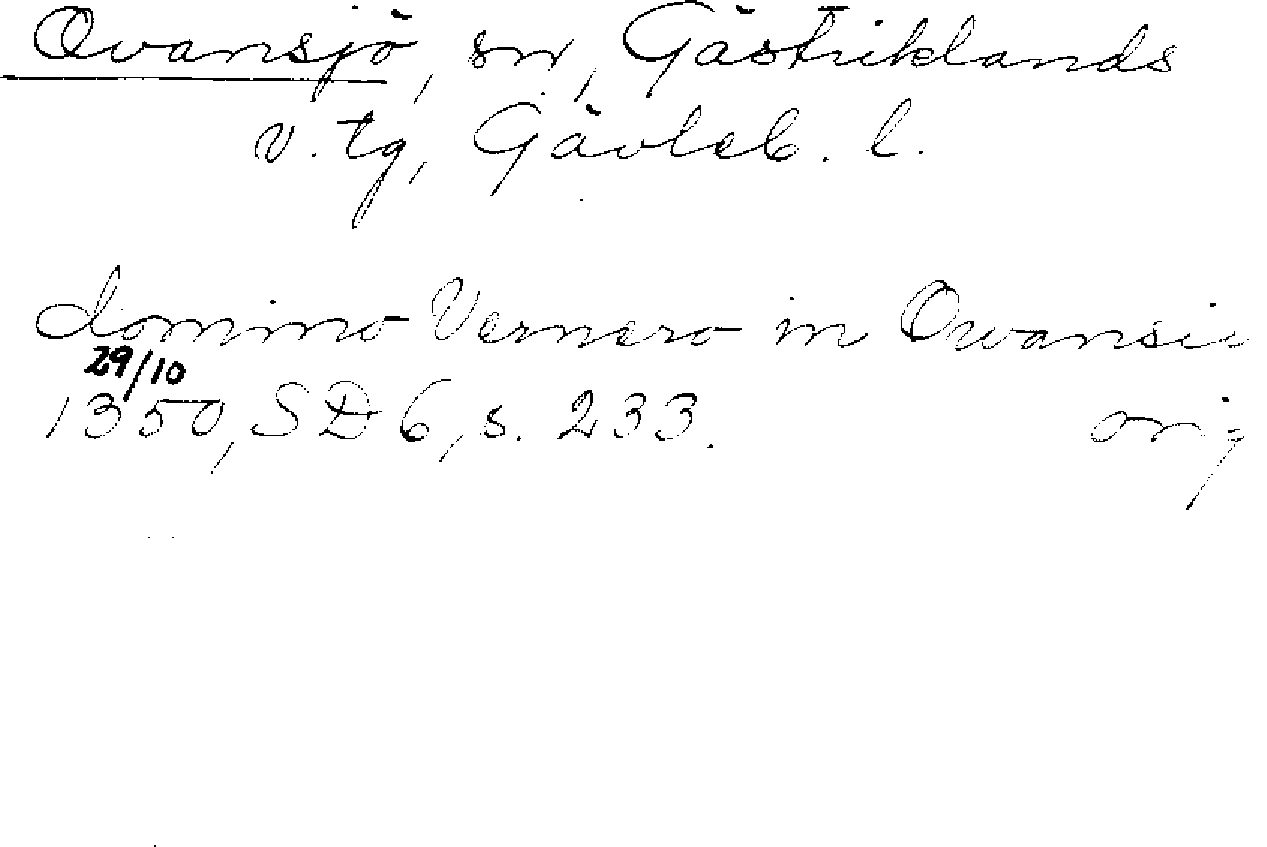 Ovansjö, sn, Gästriklands
v. tg, Gävleb. l.
domino Vernero in Owansiu
29/10
1350, SD 6, s. 233. orig